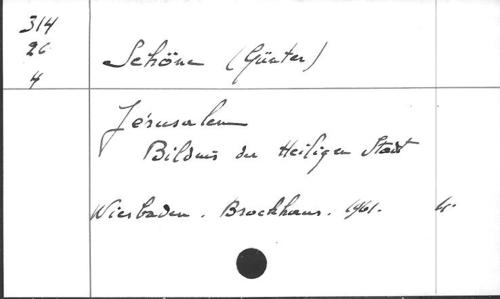 314
26
4
Schöne (Günter)
Jérusalem
Bildnis der Heiligen Stadt
Wiesbaden. Brockhaus. 1961. 4.